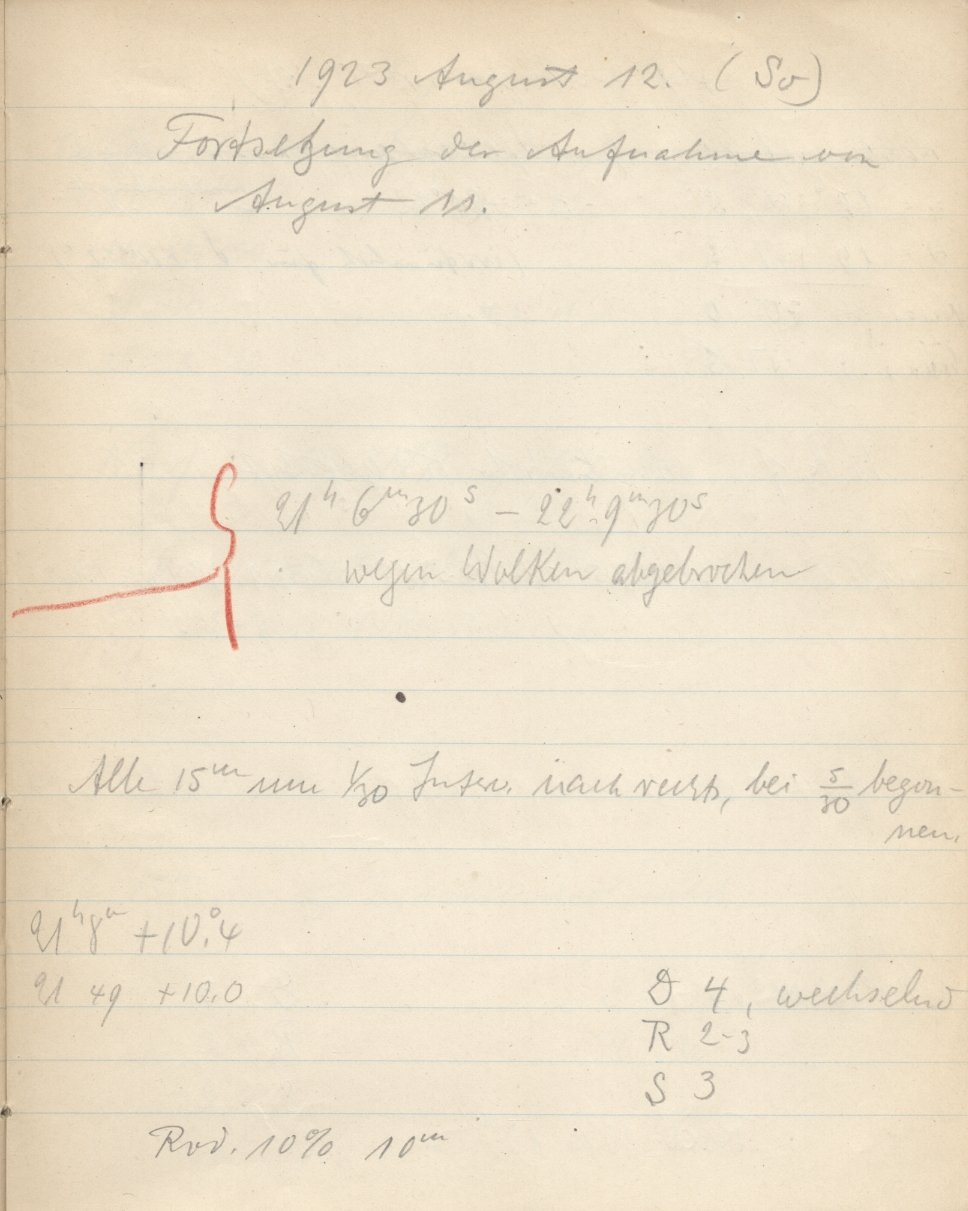 1923 August 12. (So)
Fortsetzung der Aufnahme von
August 11.
21ʰ 6ᵐ30ˢ – 22ʰ 9ᵐ30ˢ
wegen Wolken abgebrochen
Alle 15ᵐ um 1/30 Interv. nach rechts, bei 5/30 begon-
nen.
21ʰ8ᵐ +10°.4
21 49 +10.0
D 4, wechselnd
R 2-3
S 3
Rod. 10% 10ᵐ